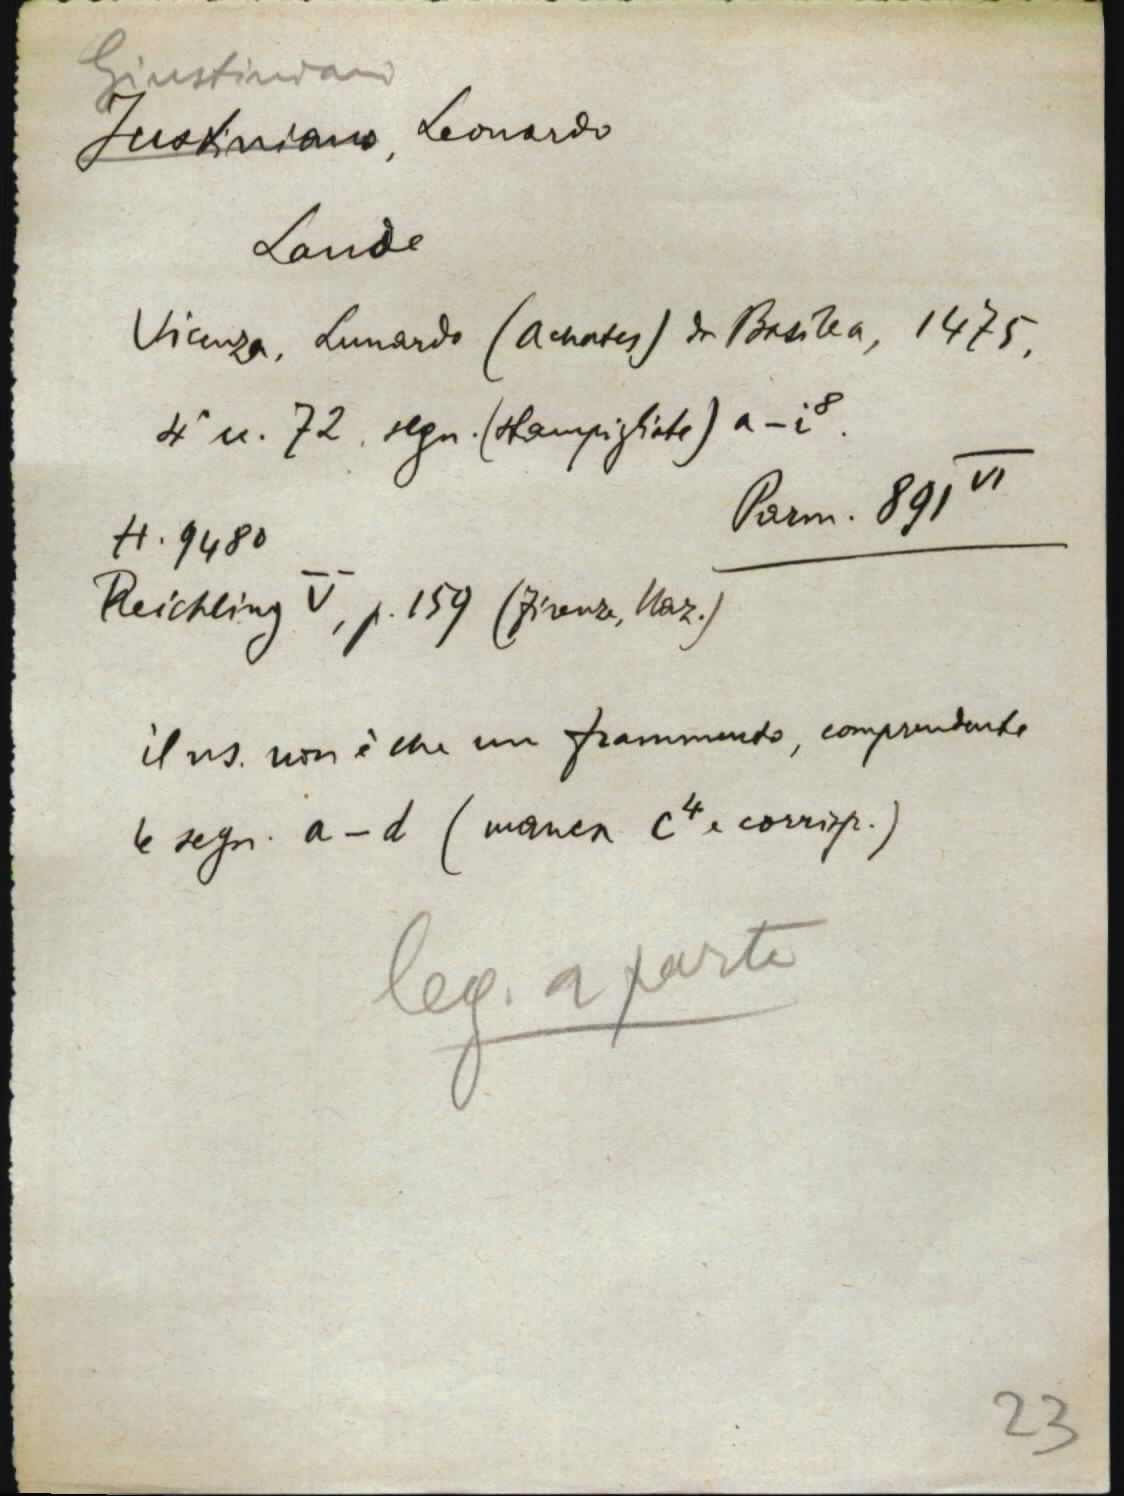 Giustiniani
Justiniano, Leonardo
Laude
Vicenza, Lunardo (Achates) da Basilea, 1475.
4° n. 72. segn. (stampigliate) a-i⁸.
Parm. 891 VI
H. 9480
Reichling V, p. 159 (Firenze, Naz.)
il ns. non è che un frammento, comprendente
le segn. a-d (manca c⁴ e corrisp.)
leg. a parte
23